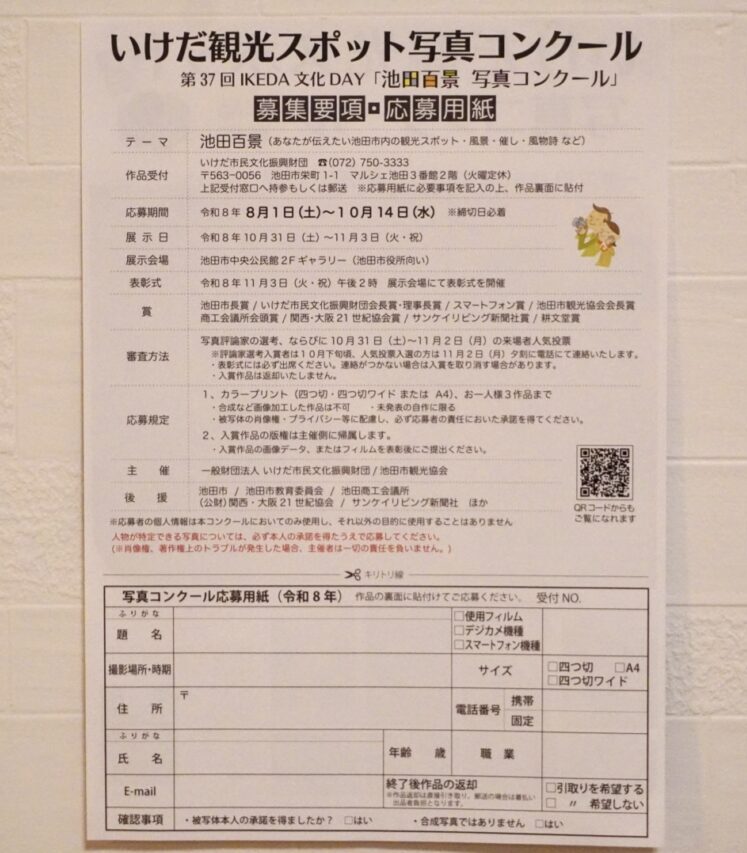 いけだ観光スポット写真コンクール
第37回 IKEDA 文化 DAY「池田百景 写真コンクール」
募集要項・応募用紙
テーマ 池田百景（あなたが伝えたい池田市内の観光スポット・風景・催し・風物詩 など）
作品受付 いけだ市民文化振興財団 ☎(072) 750-3333
〒563-0056 池田市栄町1-1 マルシェ池田3番館2階（火曜定休）
上記受付窓口へ持参もしくは郵送 ※応募用紙に必要事項を記入の上、作品裏面に貼付
応募期間 令和8年 8月1日(土)～10月14日(水) ※締切日必着
展示日 令和8年10月31日（土）～11月3日（火・祝）
展示会場 池田市中央公民館2Fギャラリー（池田市役所向い）
表彰式 令和8年11月3日（火・祝）午後2時 展示会場にて表彰式を開催
賞 池田市長賞 / いけだ市民文化振興財団会長賞・理事長賞 / スマートフォン賞 / 池田市観光協会会長賞
商工会議所会頭賞 / 関西・大阪21世紀協会賞 / サンケイリビング新聞社賞 / 耕文堂賞
審査方法 写真評論家の選考、ならびに10月31日（土）～11月2日（月）の来場者人気投票
※評論家選考入賞者は10月下旬頃、人気投票入選の方は11月2日（月）夕刻に電話にて連絡いたします。
・表彰式には必ず出席ください。連絡がつかない場合は入賞を取り消す場合があります。
・入賞作品は返却いたしません。
応募規定 1、カラープリント（四つ切・四つ切ワイド または A4）、お一人様3作品まで
・合成など画像加工した作品は不可 ・未発表の自作に限る
・被写体の肖像権・プライバシー等に配慮し、必ず応募者の責任において承諾を得てください。
2、入賞作品の版権は主催側に帰属します。
・入賞作品の画像データ、またはフィルムを表彰後にご提出ください。
主催 一般財団法人 いけだ市民文化振興財団 / 池田市観光協会
後援 池田市 / 池田市教育委員会 / 池田商工会議所
(公財) 関西・大阪21世紀協会 / サンケイリビング新聞社 ほか
QRコードからも
ご覧になれます
※応募者の個人情報は本コンクールにおいてのみ使用し、それ以外の目的に使用することはありません
人物が特定できる写真については、必ず本人の承諾を得たうえで応募してください。
(※肖像権、著作権上のトラブルが発生した場合、主催者は一切の責任を負いません。)
キリトリ線
写真コンクール応募用紙（令和8年） 作品の裏面に貼付けてご応募ください。 受付NO.
ふりがな
題名
□使用フィルム
□デジカメ機種
□スマートフォン機種
撮影場所・時期 サイズ □四つ切 □A4
□四つ切ワイド
住所 〒 電話番号 携帯
固定
ふりがな
氏名 年齢 歳 職業
E-mail 終了後作品の返却
※作品返却は直接引き取り、郵送の場合は着払い
出品者負担となります。
□引取りを希望する
□ 〃 希望しない
確認事項 ・被写体本人の承諾を得ましたか？ □はい ・合成写真ではありません □はい